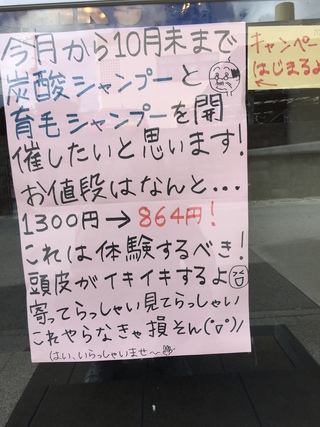 今月から10月末まで
炭酸シャンプーと
育毛シャンプーを開
催したいと思います!
お値段はなんと...
1300円→864円!
これは体験するべき!
頭皮がイキイキするよ
寄ってらっしゃい見てらっしゃい
これやらなきゃ損そん(°▽°)/
(はい、いらっしゃいませ〜
キャンペー
はじまるよ
←